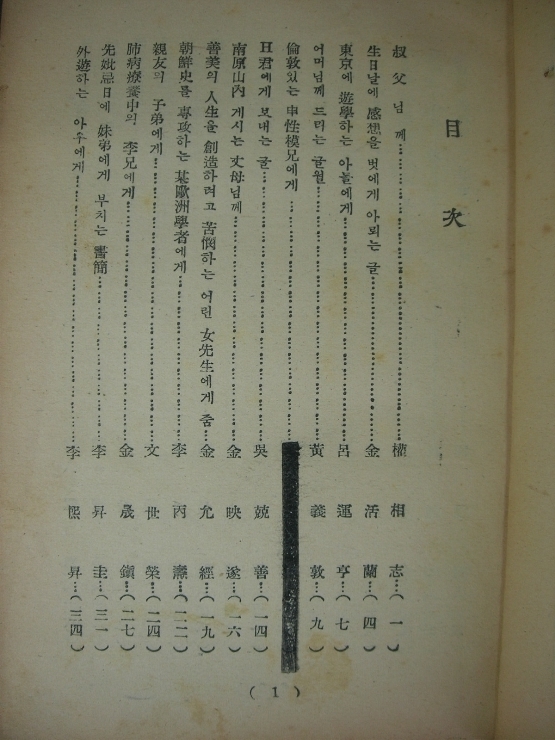 目次
叔父님께……權相老…(一)
生日날에 感想을 벗에게 아뢰는 글……金活蘭…(四)
東京에 遊學하는 아들에게……呂運亨…(七)
어머님께 드리는 글월……黃義敦…(九)
倫敦있는 申性模兄에게……
H君에게 보내는 글……吳兢善…(一四)
南原山內 게시는 丈母님께……金映遂…(一六)
善美의 人生을 創造하려고 苦憫하는 어린 女先生에게 줌…金允經…(一九)
朝鮮史를 專攻하는 某歐洲學者에게……李丙燾…(二二)
親友의 子弟에게……文世榮…(二四)
肺病療養中의 李兄에게……金晟鎭…(二七)
先妣忌日에 妹弟에게 부치는 書簡……李昇圭…(三一)
外遊하는 아우에게……李熙昇…(三四)
( 1 )